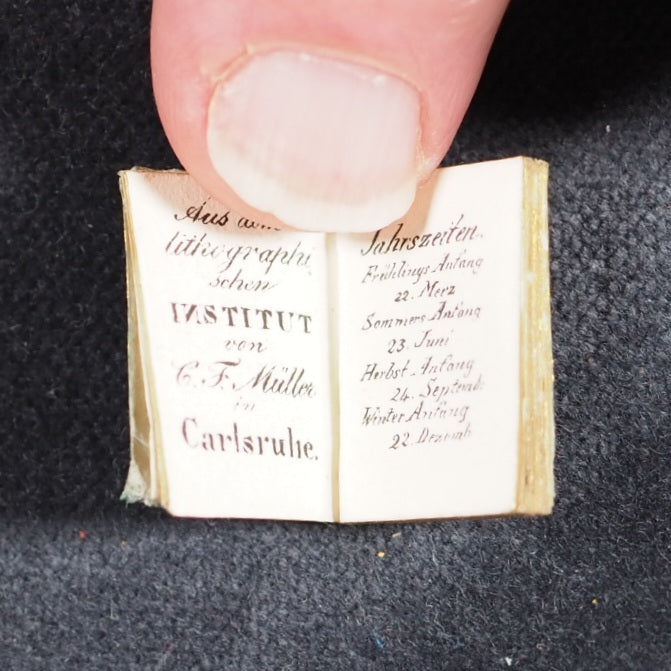 Aus dem
lithographi
schen
INSTITUT
von
C. F. Müller
in
Carlsruhe.
Jahrszeiten.
Frühlings Anfang
22. Merz
Sommers Anfang
23. Juni
Herbst Anfang
24. Septemb
Winter Anfang
22. Dezemb